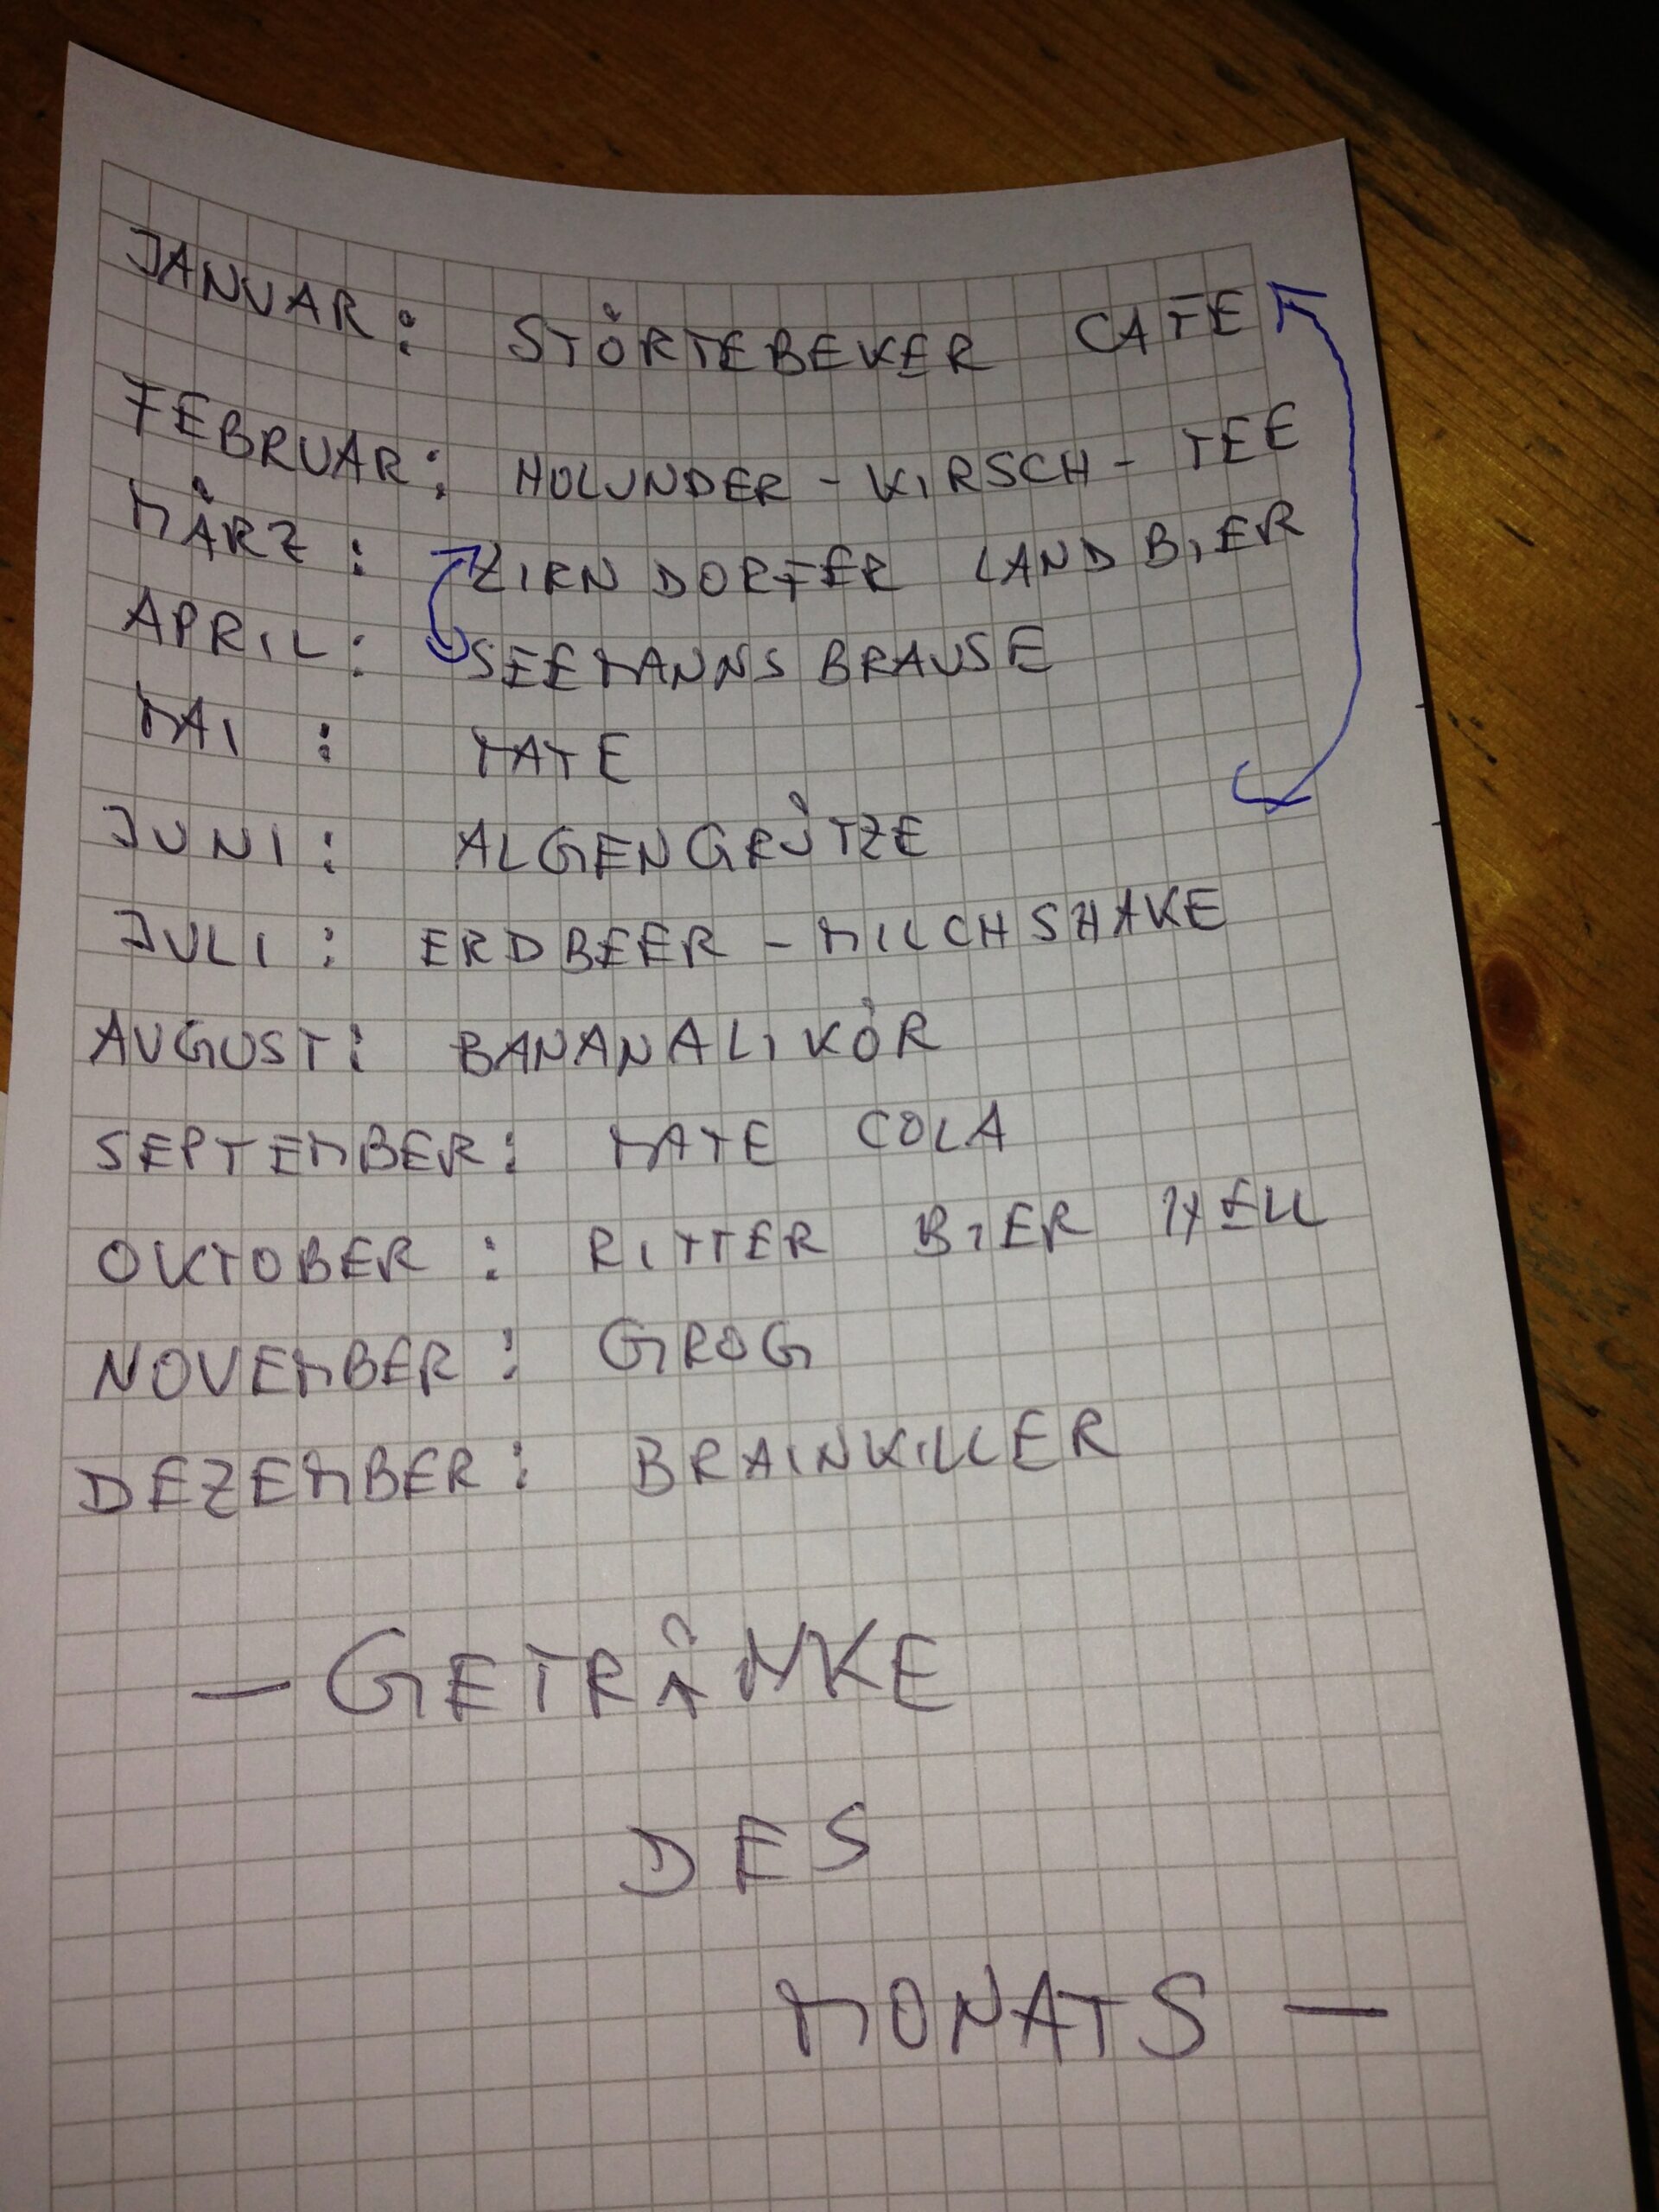 JANUAR: STÖRTEBEKER CAFE
FEBRUAR: HOLUNDER-KIRSCH-TEE
MÄRZ: ZIRNDORFER LANDBIER
APRIL: SEEMANNSBRAUSE
MAI: MATE
JUNI: ALGENGRÜTZE
JULI: ERDBEER-MILCHSHAKE
AUGUST: BANANALIKÖR
SEPTEMBER: MATE COLA
OKTOBER: RITTER BIER HELL
NOVEMBER: GROG
DEZEMBER: BRAINKILLER
— GETRÄNKE
DES
MONATS —